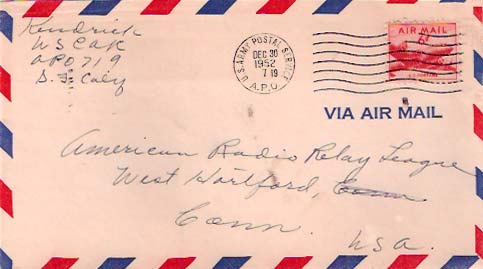 Kendrick
WSCAK
APO 719
S. F. Caly
U.S. ARMY POSTAL SERVICE
DEC 30
1952
7 19
A.P.O.
AIR MAIL
6¢
VIA AIR MAIL
American Radio Relay League
West Hartford, Conn
Conn.
USA.